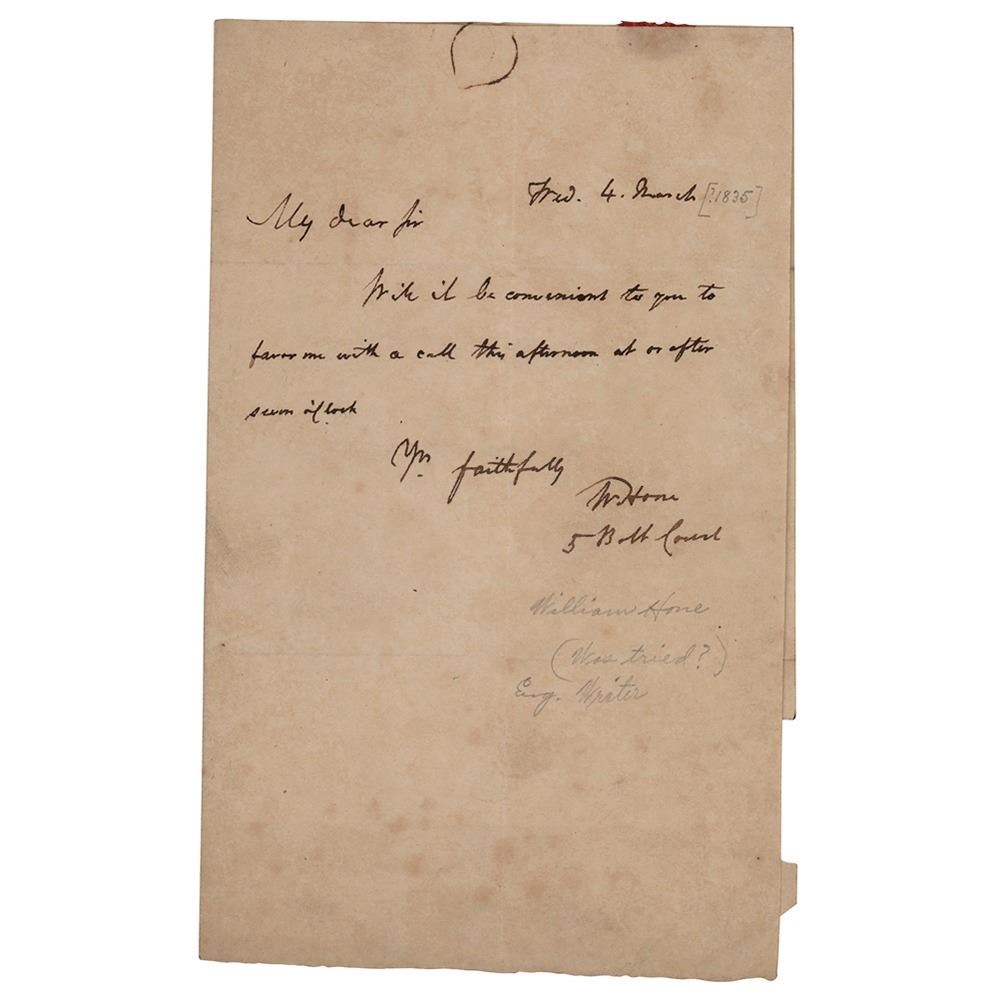 Wed. 4. March [?1835]
My dear Sir
Will it be convenient to you to
favor me with a call this afternoon at or after
seven o'Clock
Yrs faithfully
W Hone
5 Bolt Court
William Hone
(Was tried?)
Eng. Writer